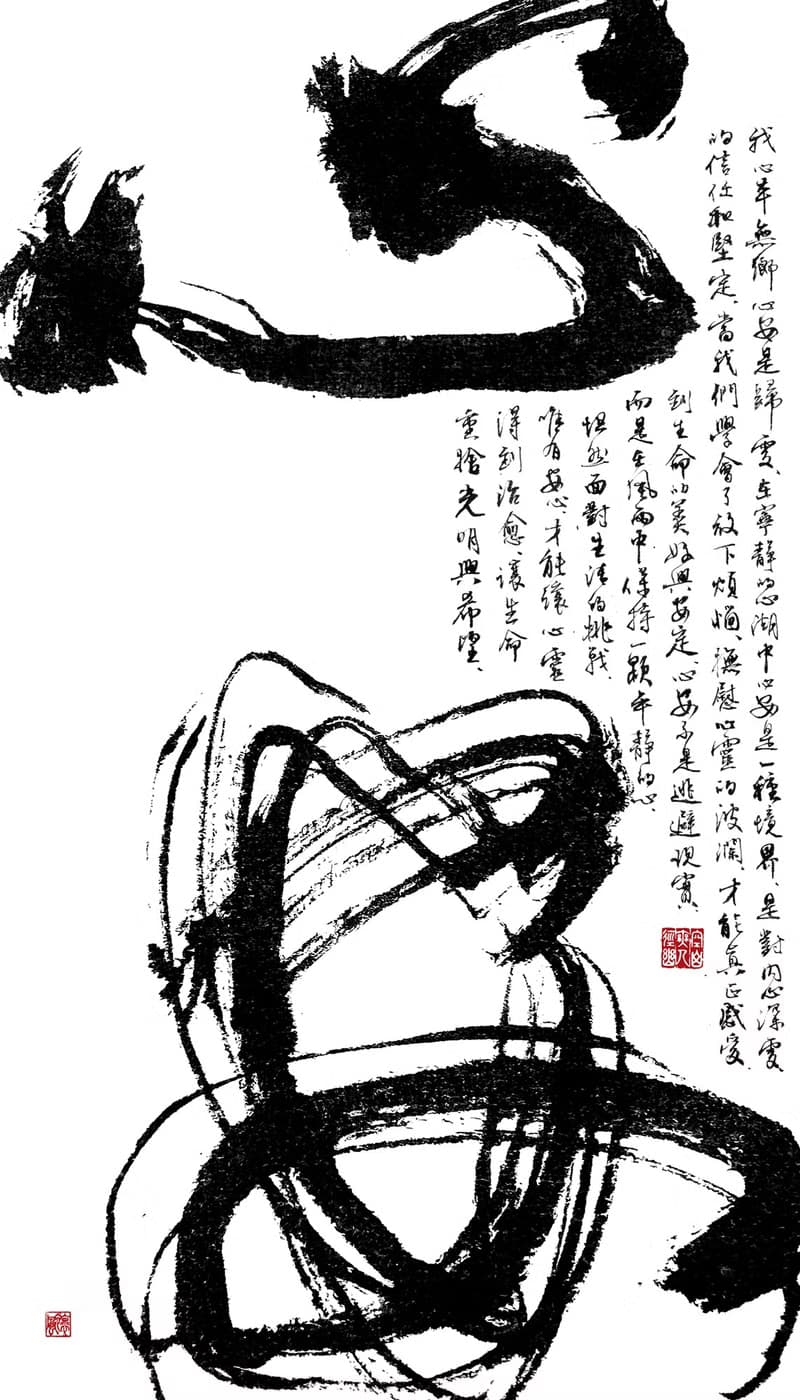 心安
我心本無鄉心安是歸處、在寧靜的心湖中心安是一種境界、是對內心深處
的信任和堅定、當我們學會了放下煩惱、撫慰心靈的波瀾、才能真正感受
到生命的美好與安定、心安不是逃避現實、
而是在風雨中保持一顆平靜的心、
坦然面對生活的挑戰、
唯有安心、才能讓心靈
得到治愈、讓生命
重捨光明與希望、